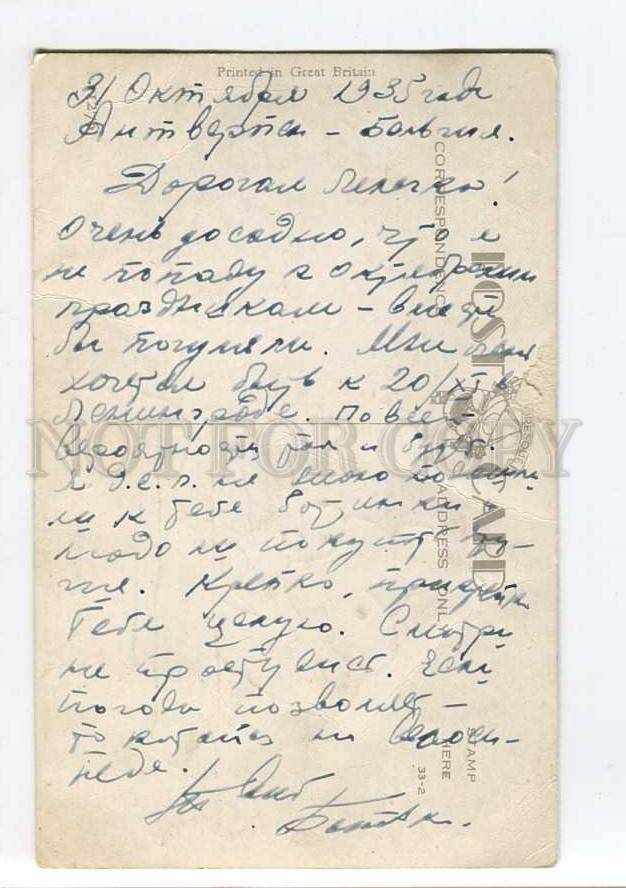 Printed in Great Britain
31 Октября 1935 года
Антверпен – Бельгия.
Дорогая Леночка!
Очень досадно, что я
не попаду к октябрьским
праздникам – вместе
бы погуляли. Мы очень
хотели быть к 20/XI в
Ленинграде. По всей
вероятности так и будет.
Я д.с.п. не знаю
ли к тебе ботинки
надо ли покупать
Крепко,
Тебя целую. Смотри
не простудись. Если
погода позволяет –
то катайся на велоси-
педе.
CORRESPONDENCE
POST CARD
ADDRESS ONLY
STAMP
HERE
33-2
NOT FOR COPY